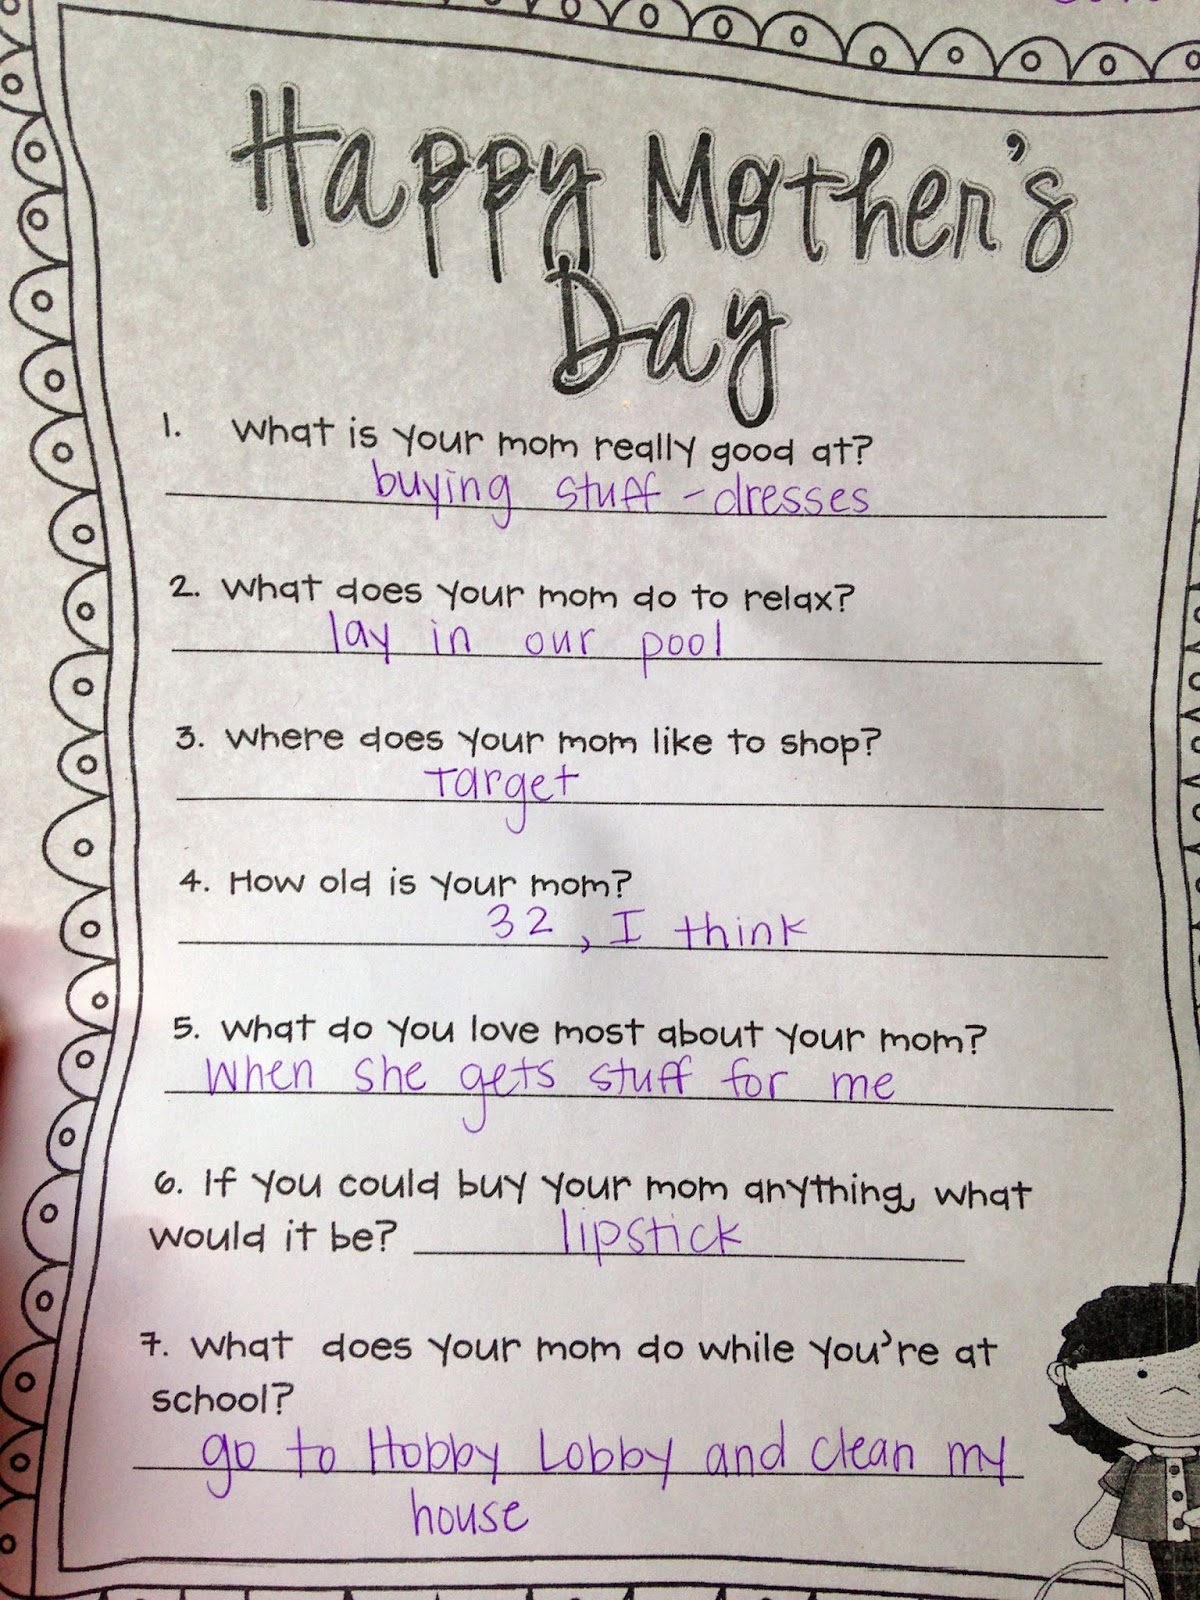 Happy Mother's
Day
1. What is your mom really good at?
buying stuff - dresses
2. What does your mom do to relax?
lay in our pool
3. Where does your mom like to shop?
Target
4. How old is your mom?
32, I think
5. What do you love most about your mom?
When she gets stuff for me
6. If you could buy your mom anything, what
would it be? lipstick
7. What does your mom do while you're at
school?
go to Hobby Lobby and clean my
house